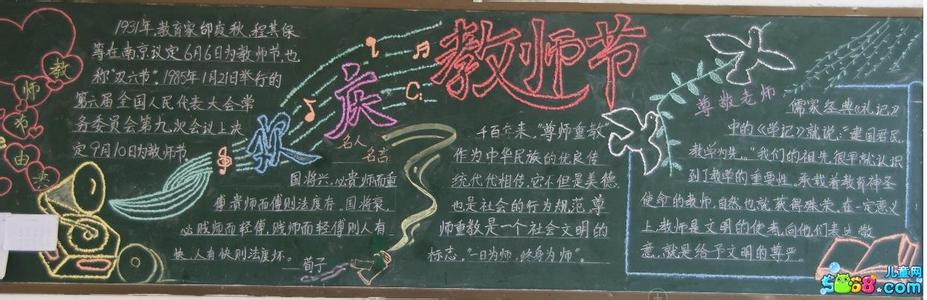 教师节由来
1931年,教育家邰爽秋、程其保
等在南京议定6月6日为教师节,也
称"双六节"。1985年1月21举行的
第六届全国人民代表大会常
务委员会第九次会议上决
定9月10日为教师节
欢庆
教师节
名人
名言
国将兴,必贵师而重
傅,贵师而重傅则法度存。国将衰,
必贱师而轻傅,贱师而轻傅则人有
快,人有快则法度坏。
荀子
千百年来,"尊师重教"
作为中华民族的优良传
统代代相传,它不但是美德,
也是社会的行为规范,尊
师重教是一个社会文明的
标志,"一日为师,终身为师"。
尊敬老师
儒家经典《礼记》
中的《学记》就说:"建国君民,
教学为先。"我们的祖先很早就认识
到了教学的重要性。承载着教育神圣
使命的教师,自然也就获得殊荣,在一定意义
上,教师是文明的使者,向他们表达敬
意,就是给予文明的尊严。
儿童网
5068.com